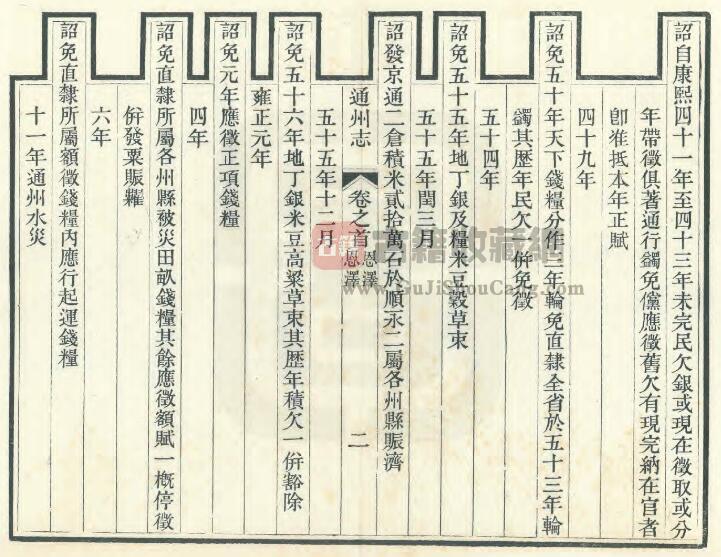 詔自康熙四十一年至四十三年未完民欠銀或現在徵取或分
年帶徵俱著通行蠲免儻應徵舊欠有現完納在官者
卽准抵本年正賦
四十九年
詔免五十年天下錢糧分作三年輪免直隸全省於五十三年輪
蠲其歷年民欠一併免徵
五十四年
詔免五十五年地丁銀及糧米豆穀草束
五十五年閏三月
詔發京通二倉積米貳拾萬石於順永二屬各州縣賑濟
通州志
卷之首
恩澤
恩澤
二
五十五年十二月
詔免五十六年地丁銀米豆高粱草束其歷年積欠一併豁除
雍正元年
詔免元年應徵正項錢糧
四年
詔免直隸所屬各州縣被災田畝錢糧其餘應徵額賦一槪停徵
併發粟賑糶
六年
詔免直隸所屬額徵錢糧內應行起運錢糧
十一年通州水災
古籍收藏網
www.GuJiShouCang.com